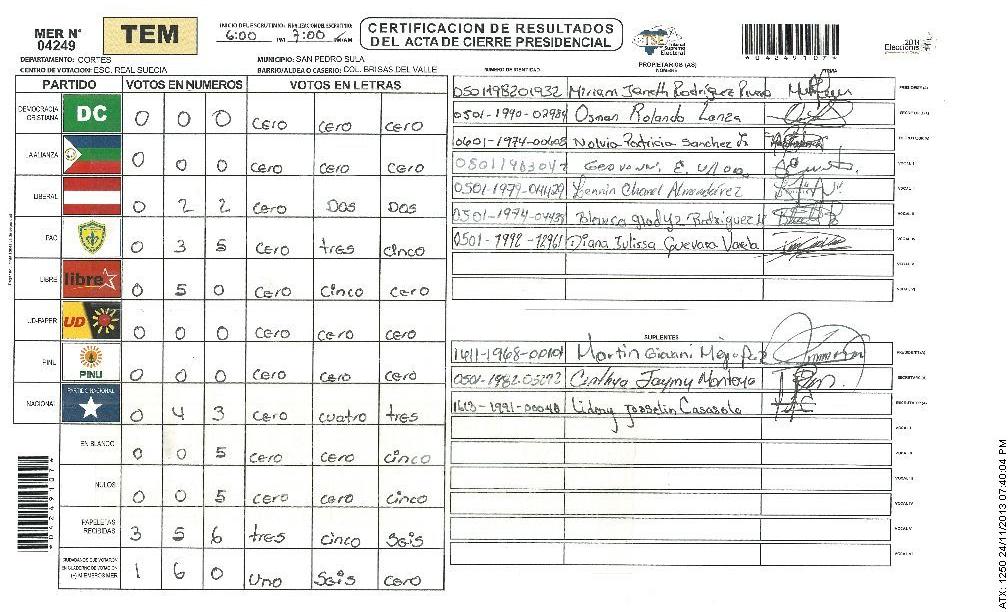 MER N° 04249
TEM
INICIO DEL ESCRUTINIO: FINALIZACION DEL ESCRUTINIO:
6:00 PM 7:00 PM/AM
CERTIFICACION DE RESULTADOS
DEL ACTA DE CIERRE PRESIDENCIAL
TSE Tribunal Supremo Electoral
*04249107*
2013 Elecciones
DEPARTAMENTO: CORTES
MUNICIPIO: SAN PEDRO SULA
CENTRO DE VOTACION: ESC. REAL SUECIA
BARRIO/ALDEA O CASERIO: COL. BRISAS DEL VALLE
PARTIDO VOTOS EN NUMEROS VOTOS EN LETRAS
DEMOCRACIA CRISTIANA DC 0 0 0 Cero Cero Cero
AALIANZA 0 0 0 Cero Cero Cero
LIBERAL 0 2 2 Cero Dos Dos
PAC 0 3 5 Cero tres Cinco
LIBRE libre 0 5 0 Cero Cinco Cero
UD-FAPER UD 0 0 0 Cero Cero Cero
PINU PINU 0 0 0 Cero Cero Cero
NACIONAL PARTIDO NACIONAL 0 4 3 Cero cuatro tres
EN BLANCO 0 0 5 Cero Cero Cinco
NULOS 0 0 5 Cero Cero Cinco
PAPELETAS RECIBIDAS 3 5 6 tres cinco Seis
CIUDADANOS QUE VOTARON EN CUADERNO DE VOTACION (+) MIEMBROS MER 1 6 0 Uno Seis Cero
NUMERO DE IDENTIDAD PROPIETARIOS (AS) NOMBRE FIRMA
0501198201932 Miriam Janeth Rodriguez PRESIDENTE(A)
0501-1990-02984 Osman Rolando Lanza SECRETARIO(A)
Nolvia Patricia Sanchez
VOCAL I
Chanel
0501-1974- Blanca Gladyz Rodriguez
0501-1992-12961 Diana Julissa Guevara Varela
VOCAL V
SUPLENTES
1411-1968-00101 Martin Giovani PRESIDENTE(A)
0501-1982-05272 Cinthya Jaymy Montoya SECRETARIO(A)
1613-1991-00048 Josselin Casasola
*04249107*
ATX: 1250 24/11/2013 07:40:04 PM